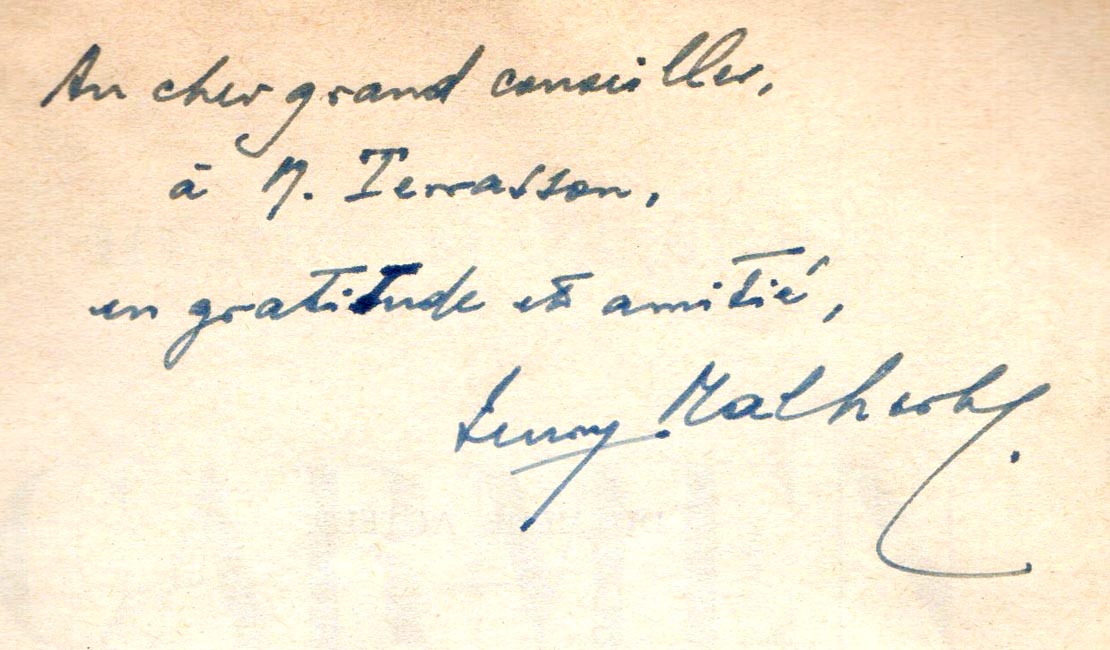 Au cher grand conseiller,
à M. Terrasson,
en gratitude et amitié,
Henry Malherbe.